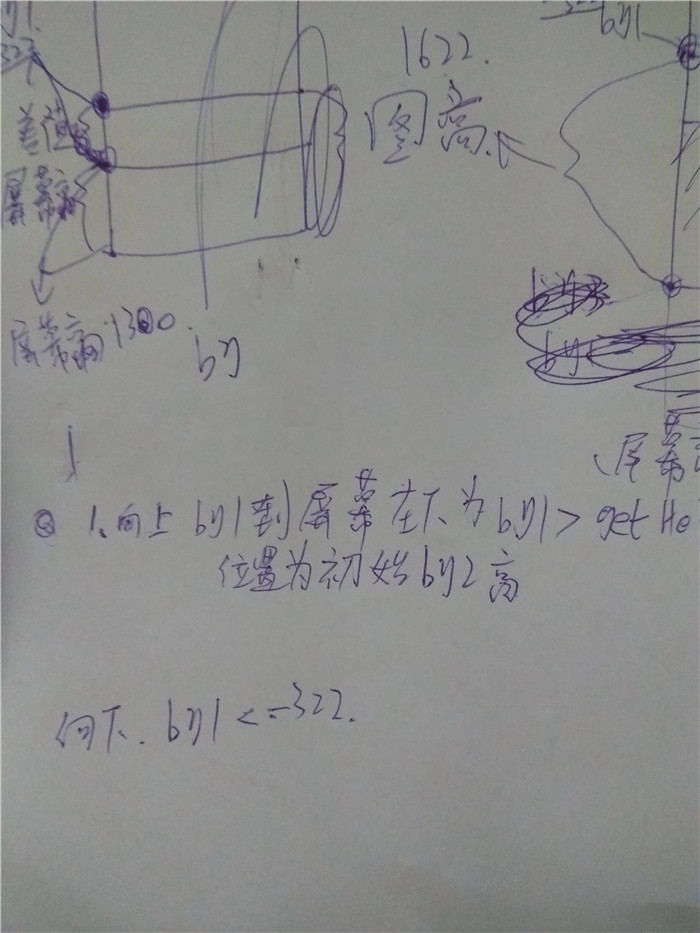 by1
1622.
图高
差值
屏幕高
屏幕高1300.
by
屏幕
1.向上by1到屏幕左下为by1> get He
位置为初始by2高
向下.by1<=-322.